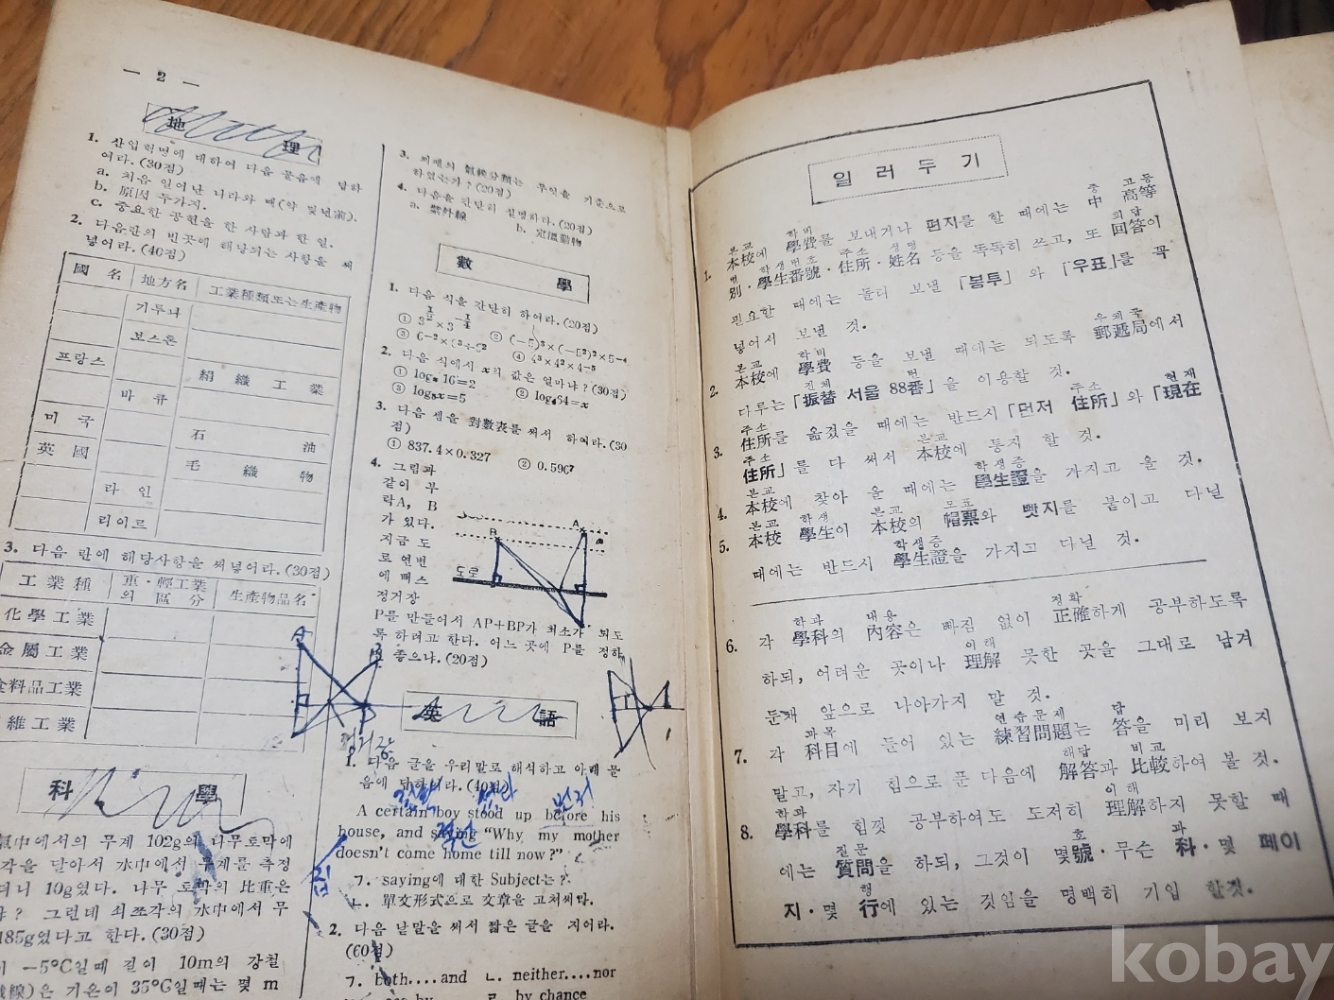 — 2 —
地理
1. 산업혁명에 대하여 다음 물음에 답하
여라. (30점)
a. 처음 일어난 나라와 때(약 몇년前).
b. 原因 두가지.
c. 중요한 공헌을 한 사람과 한 일.
2. 다음란의 빈곳에 해당되는 사항을 써
넣어라. (40점)
國名 地方名 工業種類또는生産物
보스톤
프랑스 絹織工業
바큐
미국 石油
英國 毛織物
라인
리이르
3. 다음 란에 해당사항을 써넣어라. (30점)
工業種 重·輕工業의 區分 生産物品名
化學工業
金屬工業
食料品工業
維工業
科學
氣中에서의 무게 102g의 나무토막에
각을 달아서 水中에서 무게를 측정
더니 10g었다. 나무 토막의 比重은
? 그런데 쇠쪼각의 水中에서 무
185g었다고 한다. (30점)
—5°C일때 길이 10m의 강철
線)은 기온이 35°C일때는 몇 m
3. 무엇을 기준으로
하였는가? (20점)
4. 다음을 간단히 설명하라. (20점)
a. 紫外線 b. 定溫動物
數學
1. 다음 식을 간단히 하여라. (20점)
2. 다음 식에서 x의 값은 얼마냐? (30점)
3. 다음 셈을 對數表를 써서 하여라. (30
점)
① 837.4×0.327
4. 그림과
같이 부
락A, B
가 있다.
지금 도
로 연변
에 뻐스
정거장
P를 만들어서 AP+BP가 최소가 되도
록 하려고 한다. 어느 곳에 P를 정하
좋으냐. (20점)
A
B
도로
A
B
정거장
英語
1. 다음 글을 우리말로 해석하고 아래 물
음에 답하여라. (40점)
A certain boy stood up before his
house, and saying "Why my mother
doesn't come home till now?"
ㄱ. saying에 대한 Subject는?
ㄴ. 單文形式으로 文章을 고쳐써라.
2. 다음 낱말을 써서 짧은 글을 지어라.
(60점)
ㄱ. both....and ㄴ. neither....nor
by chance
일러두기
본교 학비 중 고등
1. 本校에 學費를 보내거나 편지를 할 때에는 中 高等
별 학생번호 주소 성명 회답
別·學生番號·住所·姓名 등을 똑똑히 쓰고, 또 回答이
필요한 때에는 돌려 보낼 「봉투」와 「우표」를 꼭
넣어서 보낼 것.
본교 학비 우체국
2. 本校에 學費 등을 보낼 때에는 되도록 郵遞局에서
진체 번
다루는 「振替 서울 88番」을 이용할 것.
주소 주소 현재
3. 住所를 옮겼을 때에는 반드시 「먼저 住所」와 「現在
주소 본교
住所」를 다 써서 本校에 통지 할 것.
본교 학생증
4. 本校에 찾아 올 때에는 學生證을 가지고 올 것.
본교 학생 본교 모표
5. 本校 學生이 本校의 帽票와 뺏지를 붙이고 다닐
학생증
때에는 반드시 學生證을 가지고 다닐 것.
학과 내용 정확
6. 각 學科의 內容은 빠짐 없이 正確하게 공부하도록
이해
하되, 어려운 곳이나 理解 못한 곳을 그대로 남겨
둔채 앞으로 나아가지 말 것.
과목 연습문제 답
7. 각 科目에 들어 있는 練習問題는 答을 미리 보지
해답 비교
말고, 자기 힘으로 푼 다음에 解答과 比較하여 볼 것.
학과 이해
8. 學科를 힘껏 공부하여도 도저히 理解하지 못할 때
질문 호 과
에는 質問을 하되, 그것이 몇號·무슨 科·몇 페이
행
지·몇 行에 있는 것임을 명백히 기입 할것.
kobay